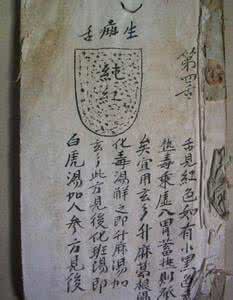 第四舌
生癍舌
純紅
舌見紅色如有小黑
熱毒乘虛入胃蓄熱則
矣宜用玄参升麻葛根
化毒湯解之即升麻湯加
玄参此方見後化斑湯即
白虎湯加人参方見後